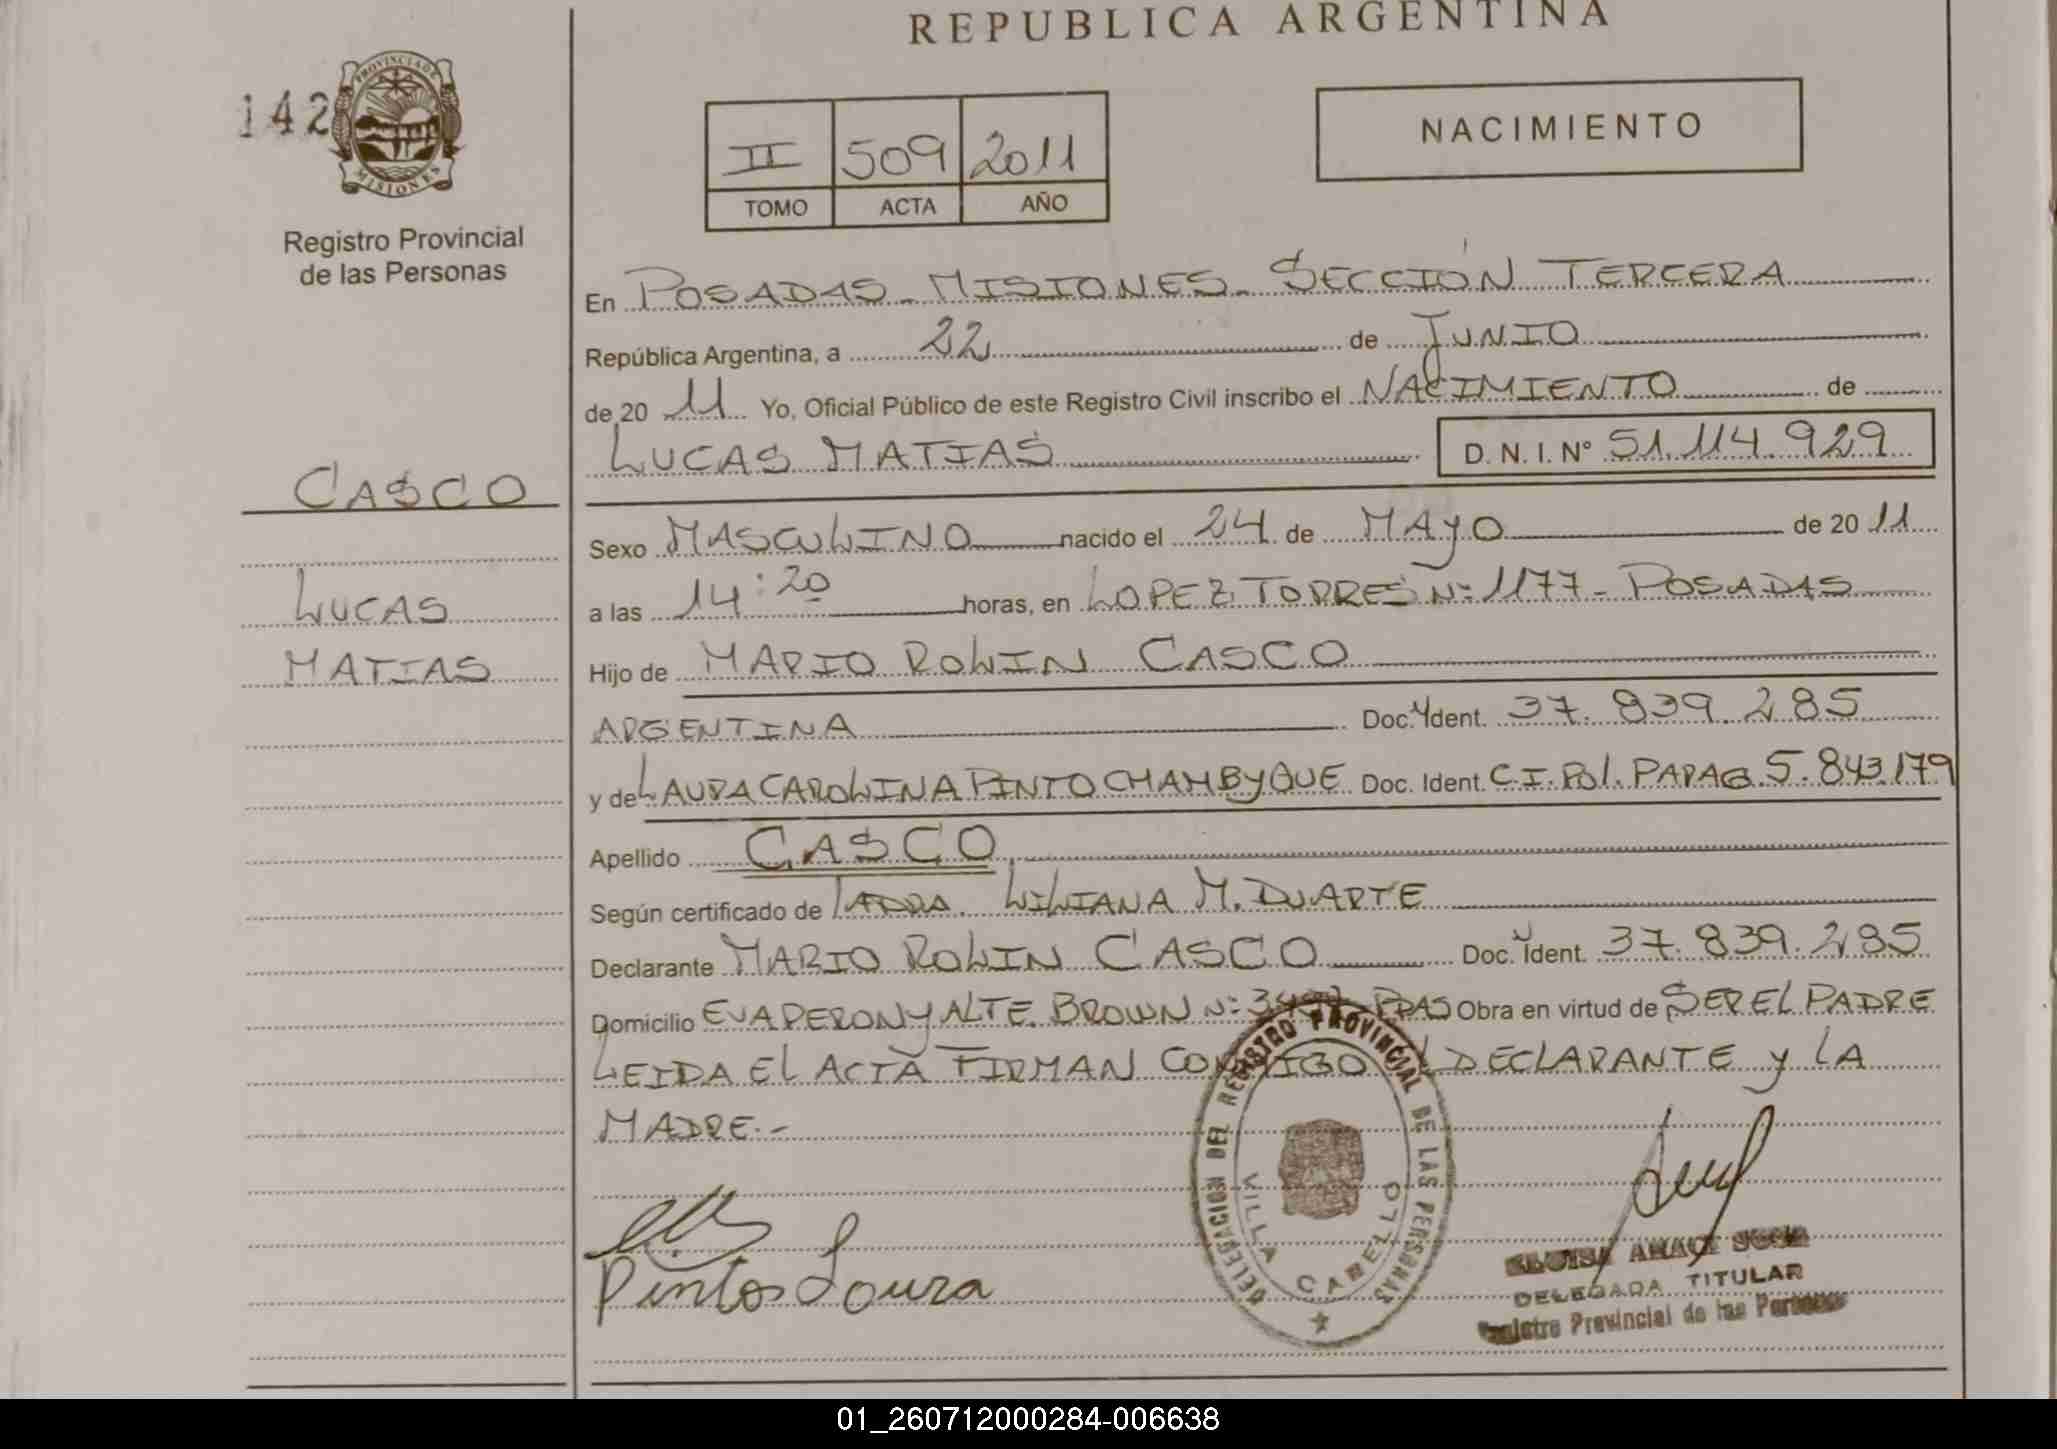 REPUBLICA ARGENTINA
142
PROVINCIA DE
MISIONES
Registro Provincial
de las Personas
II 509 2011
TOMO ACTA AÑO
NACIMIENTO
En POSADAS - MISIONES - SECCIÓN TERCERA
República Argentina, a 22 de JUNIO
de 20 11 Yo, Oficial Público de este Registro Civil inscribo el NACIMIENTO de
LUCAS MATIAS D. N. I. Nº 51.114.929
CASCO
Sexo MASCULINO nacido el 24 de MAYO de 20 11
LUCAS
a las 14:20 horas, en LOPEZ TORRES Nº 1177 - POSADAS
MATIAS
Hijo de MARIO ROLIN CASCO
ARGENTINA Doc. Ident. 37.839.285
y de LAURA CAROLINA PINTO CHAMBYQUE Doc. Ident. C.I. Pol. PARAG. 5.843.179
Apellido CASCO
Según certificado de LILIANA M. DUARTE
Declarante MARIO ROLIN CASCO Doc. Ident. 37.839.285
Domicilio EVA PERON Y ALTE. BROWN Nº PDAS Obra en virtud de SER EL PADRE
LEIDA EL ACTA FIRMAN CONMIGO EL DECLARANTE Y LA
MADRE.-
DELEGACION DEL REGISTRO PROVINCIAL DE LAS PERSONAS
VILLA CABELLO
Pinto Laura
DELEGADA TITULAR
Registro Provincial de las Personas
01_260712000284-006638